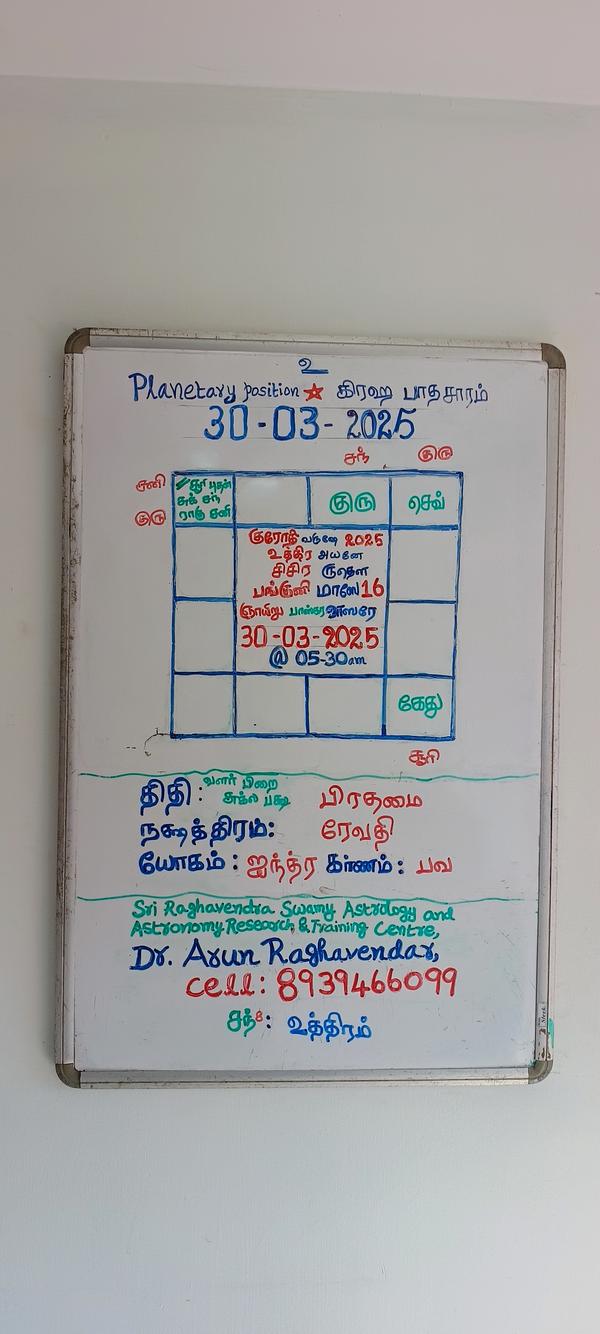 உ
Planetary position ★ கிரஹ பாதசாரம்
30-03-2025
சந் குரு
சனி
குரு
சூரி புதன்
சுக் சந்
ராகு சனி
குரு
செவ்
குரோதி வருஷே 2025
உத்திர அயனே
சிசிர ருதௌ
பங்குனி மாஸே 16
ஞாயிறு பாஸ்கர வாஸரே
30-03-2025
@ 05-30am
கேது
சூரி
திதி: வளர் பிறை
சுக்ல பக்ஷ பிரதமை
நக்ஷத்திரம்: ரேவதி
யோகம்: ஐந்த்ர கரணம்: பவ
Sri Raghavendra Swamy Astrology and
Astronomy Research & Training Centre,
Dr. Arun Raghavendar,
cell: 8939466099
சந்8: உத்திரம்